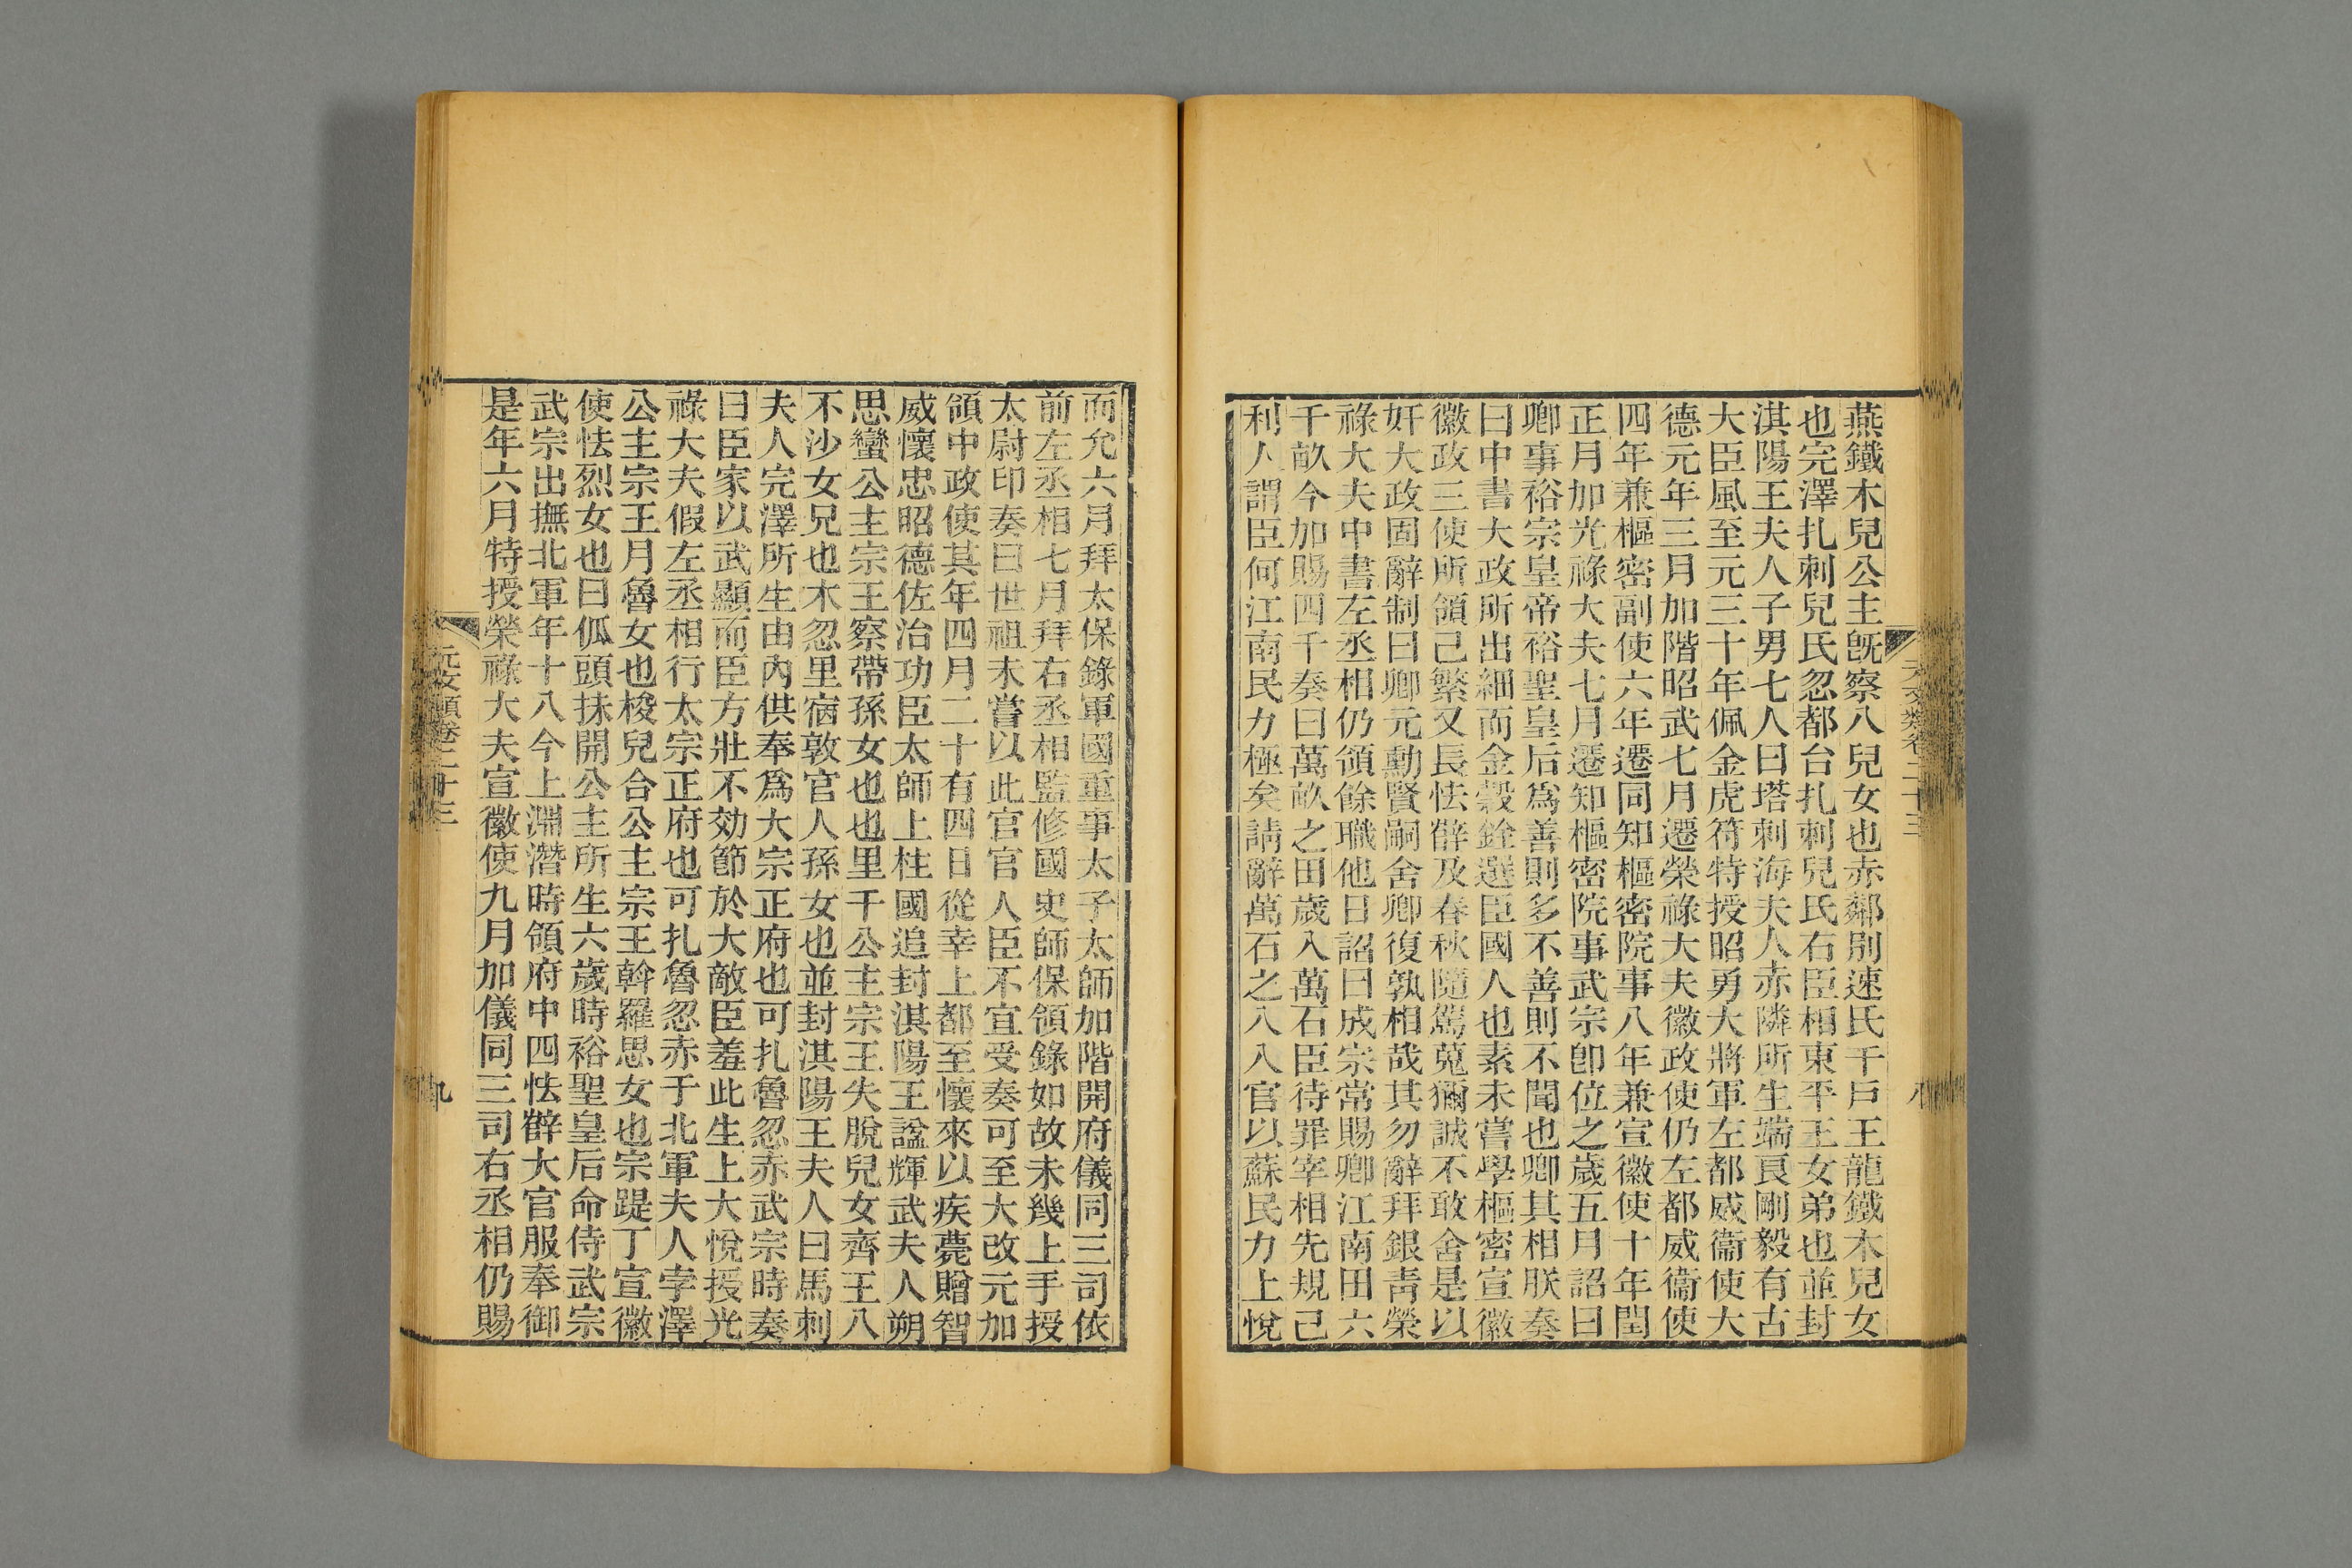 燕鐵木兒公主旣察八兒女也赤鄰別速氏千戶王龍鐵木兒女
也完澤扎刺兒氏忽都台扎刺兒氏右臣相東平王女弟也並封
淇陽王夫人子男七人曰塔刺海夫人赤隣所生端良剛毅有古
大臣風至元三十年佩金虎符特授昭勇大將軍左都威衞使大
德元年三月加階昭武七月遷榮祿大夫徽政使仍左都威衞使
四年兼樞密副使六年遷同知樞密院事八年兼宣徽使十年閏
正月加光祿大夫七月遷知樞密院事武宗卽位之歲五月詔曰
卿事裕宗皇帝裕聖皇后爲善則多不善則不聞也卿其相朕奏
曰中書大政所出細而金穀銓選臣國人也素未嘗學樞密宣徽
徽政三使所領已繁又長怯薛及春秋隨駕蒐獮誠不敢舍是以
奸大政固辭制曰卿元勳賢嗣舍卿復孰相哉其勿辭拜銀靑榮
祿大夫中書左丞相仍領餘職他日詔曰成宗常賜卿江南田六
千畝今加賜四千奏曰萬畝之田歲入萬石臣待罪宰相先規己
利人謂臣何江南民力極矣請辭萬石之入入官以蘇民力上悅
而允六月拜太保錄軍國重事太子太師加階開府儀同三司依
前左丞相七月拜右丞相監修國史師保領錄如故未幾上手授
太尉印奏曰世祖未嘗以此官官人臣不宜受奏可至大改元加
領中政使其年四月二十有四日從幸上都至懷來以疾薨贈智
威懷忠昭德佐治功臣太師上柱國追封淇陽王諡輝武夫人朔
思蠻公主宗王察帶孫女也也里千公主宗王失脫兒女齊王八
不沙女兄也木忽里宿敦官人孫女也並封淇陽王夫人曰馬刺
夫人完澤所生由內供奉爲大宗正府也可扎魯忽赤武宗時奏
曰臣家以武顯而臣方壯不効節於大敵臣羞此生上大悅授光
祿大夫假左丞相行太宗正府也可扎魯忽赤于北軍夫人孛澤
公主宗王月魯女也梭兒合公主宗王斡羅思女也宗踶丁宣徽
使怯烈女也曰佤頭抹開公主所生六歲時裕聖皇后命侍武宗
武宗出撫北軍年十八今上淵潛時領府中四怯薛大官服奉御
是年六月特授榮祿大夫宣徽使九月加儀同三司右丞相仍賜
元文類卷二十三
九